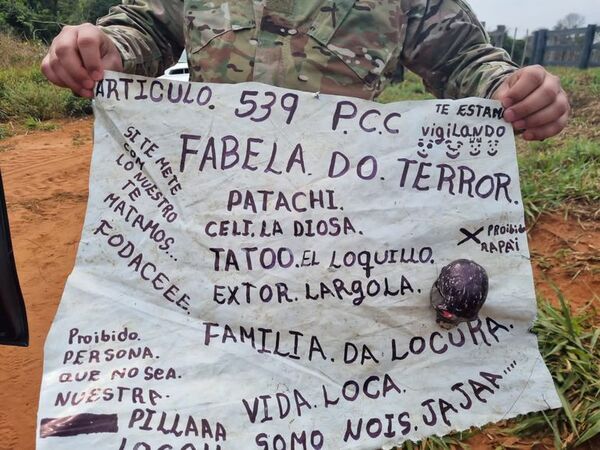 ARTICULO. 539 P.C.C
TE ESTAMO
vigilANDO
FABELA. DO. TERROR.
SI TE METE
CON
LO NUESTRO
TE
MATAMOS...
FODACEEE.
PATACHI.
CELI. LA DIOSA.
TATOO. EL LOQUILLO.
EXTOR. LARGOLA.
X PROiBiD
RAPA'i
FAMILIA. DA LOCURA.
VIDA. LOCA.
SOMO NOIS. JAJAA....
PROiBiDO.
PERSONA.
QUE NO SEA.
NUESTRA.
PILLAAA